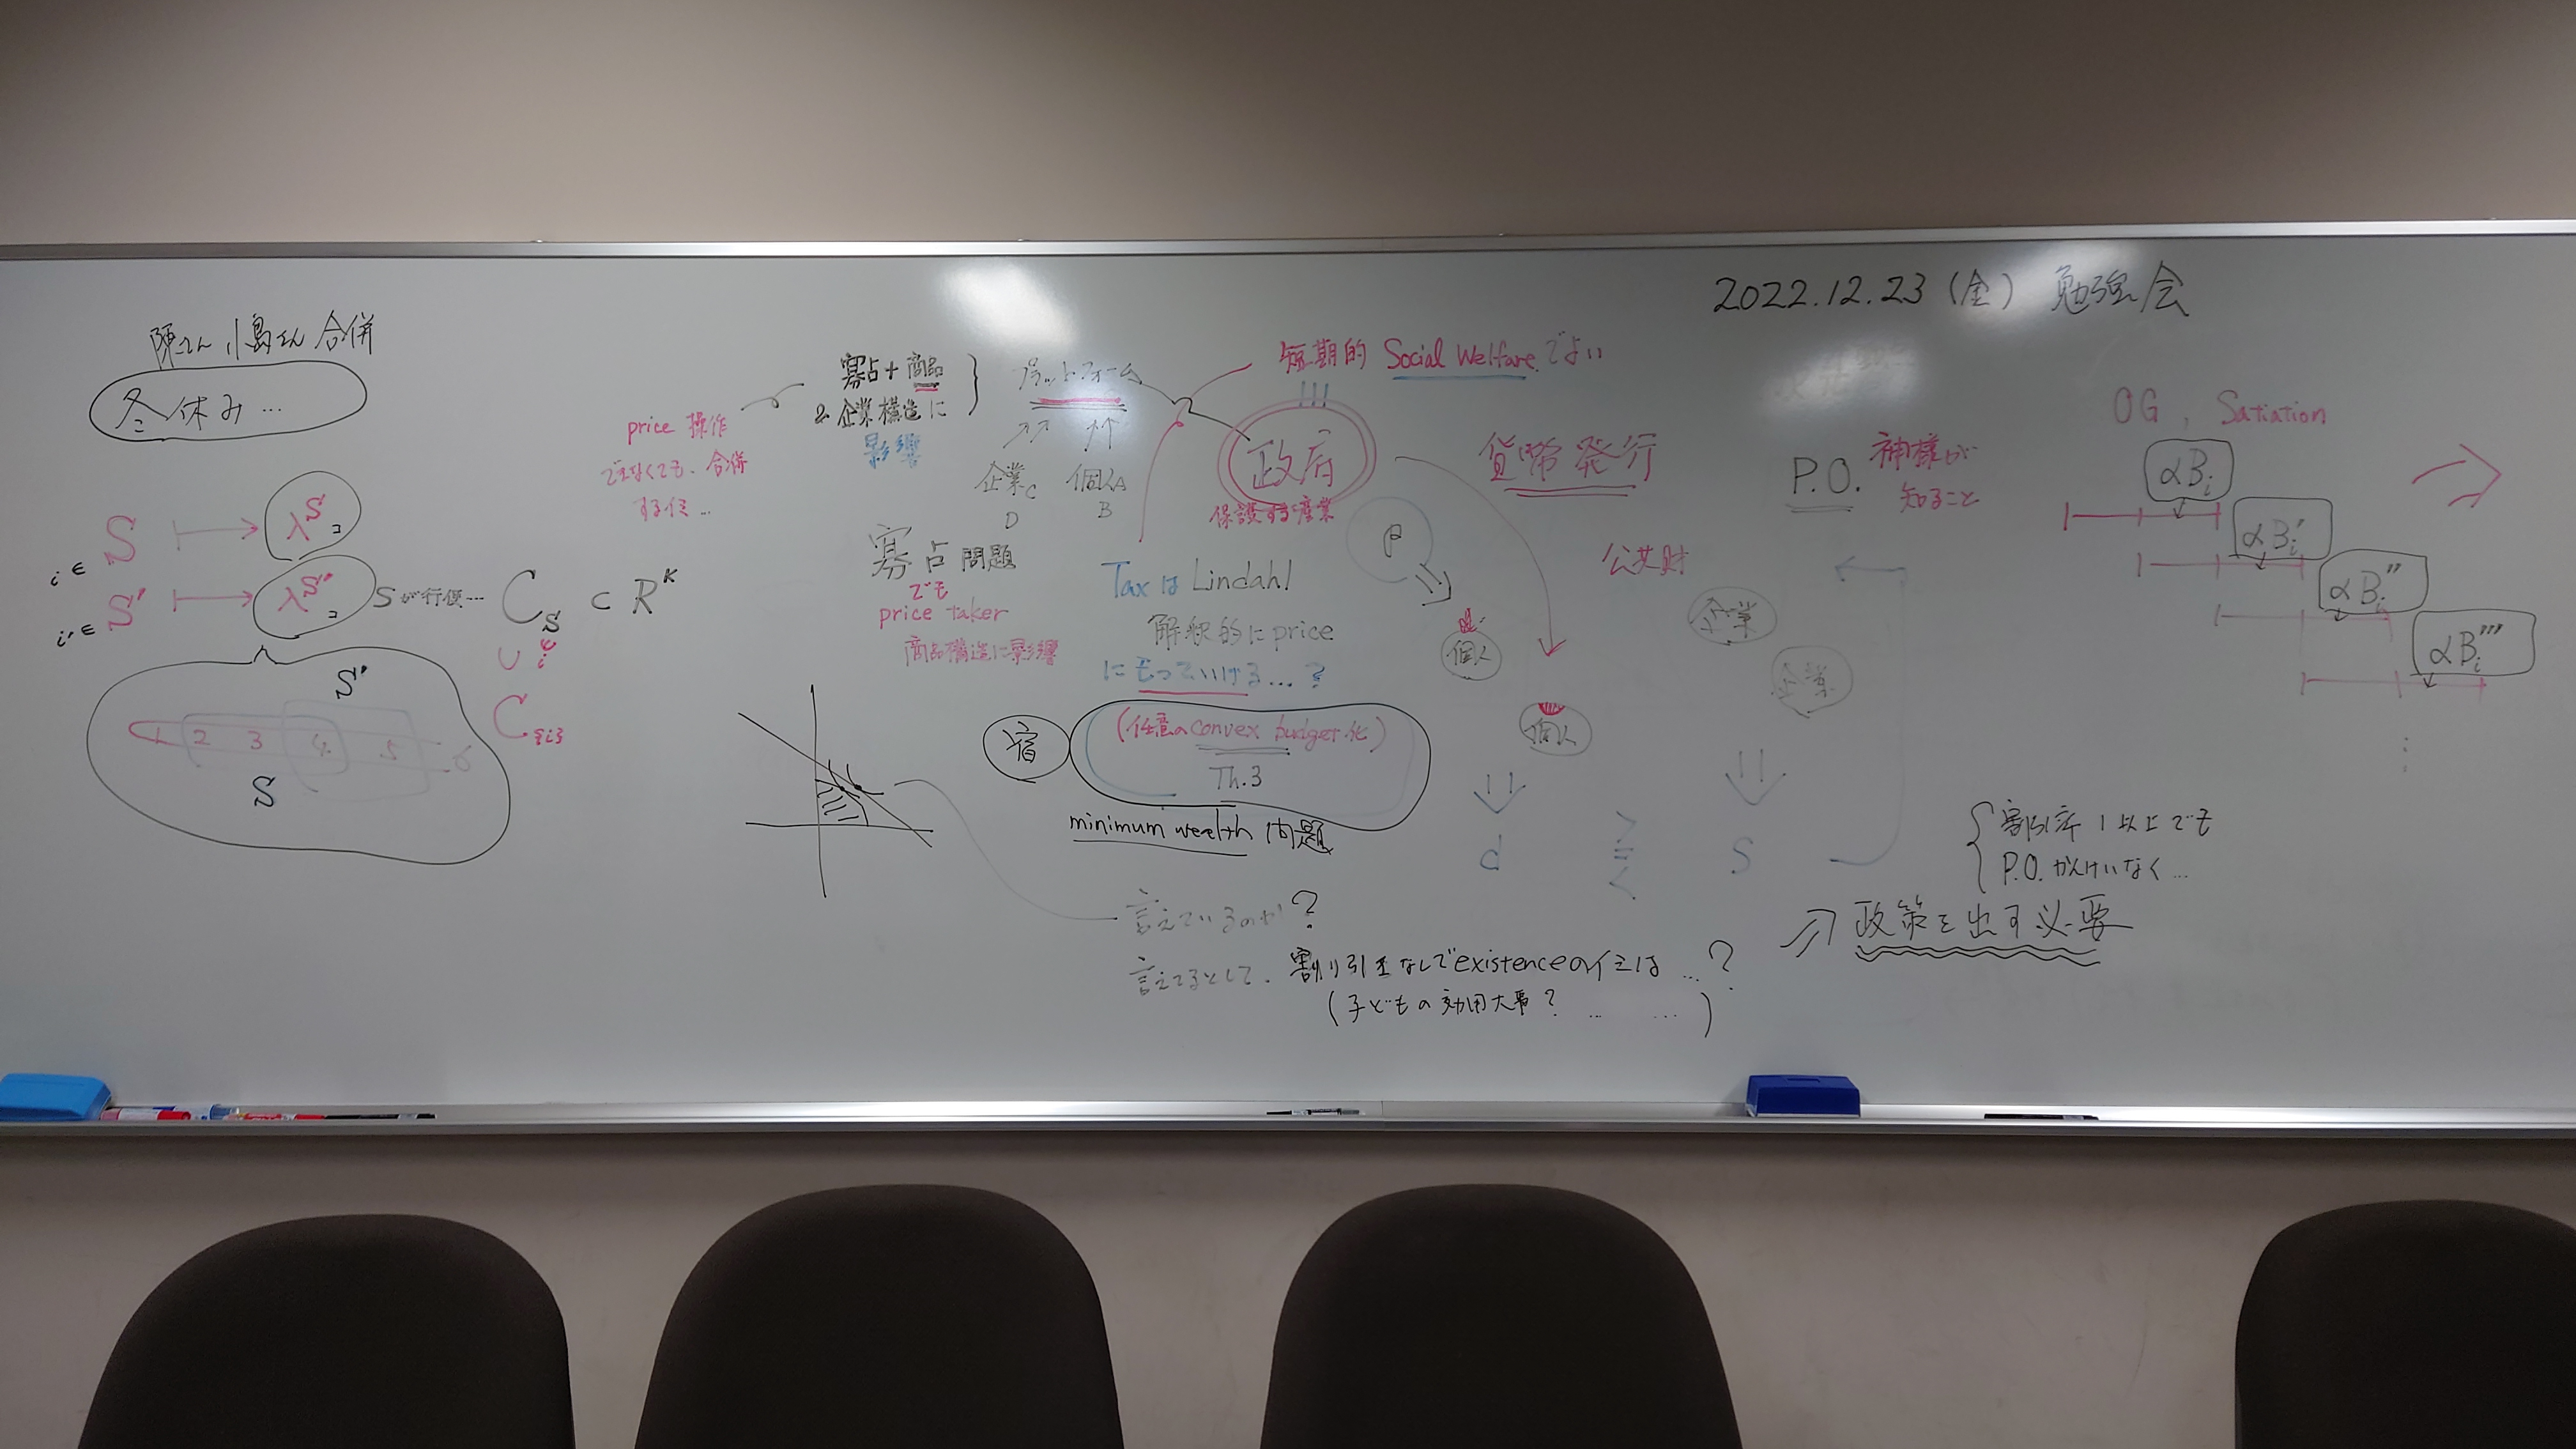 2022.12.23 (金) 勉強会
陳さん 小島さん 合併
冬休み…
i ∈ S ↦ λ^S
i' ∈ S' ↦ λ^S'
Sが行使… C_S ⊂ R^K
∪ i
C_{i}
S'
1 2 3 4 5 6
S
price 操作
できなくても、合併
する
寡占+商品
& 企業構造に
影響
プラットフォーム
企業C 個人A
D B
寡占問題
でも
price taker
商品構造に影響
短期的 Social Welfare でよい
政府
保護する産業
Tax は Lindahl
解釈的に price
にもっていける…?
宿
(任意のconvex budget化)
Th.3
minimum wealth 問題
言えているのか?
言えてるとして、割り引きなしでexistenceのイミは…?
(子どもの効用大事? … …)
貨幣発行
P
公共財
個人
個人
企業
企業
d
S
P.O. 神様が
知ること
OG, Satiation
αB_i
αB_i'
αB_i''
αB_i'''
⋮
割引率1以上でも
P.O. かんけいなく…
⇒ 政策を出す必要